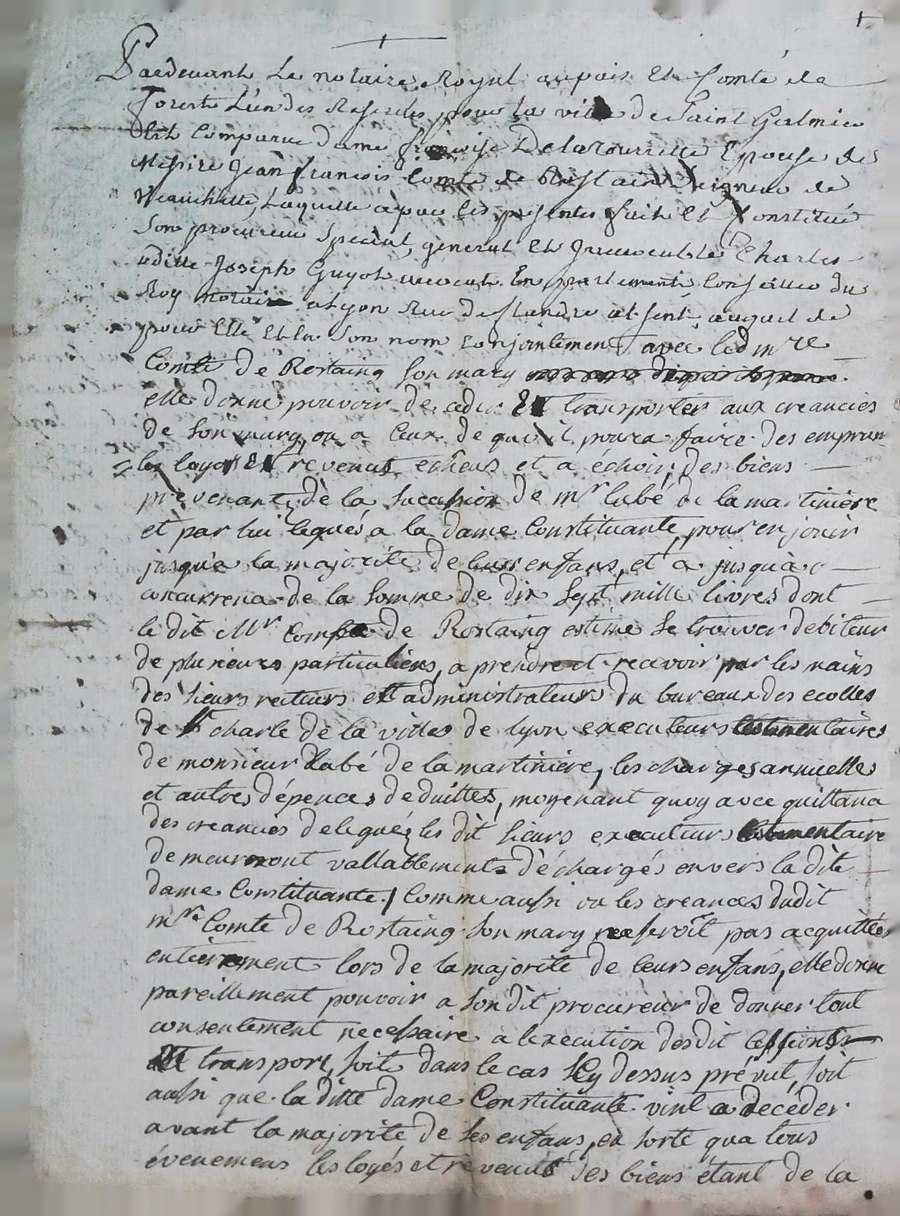 Pardevant Le notaire Royal au païs Et Comté de
Forest L'un des Reservés pour La ville de Saint Galmier
Est Comparue dame françoise Delatourrette Epouse de
Messire Jean francois Comte de Rostaing Seigneur de
Veauchette, Laquelle a par les presentes fait Et Constitué
Son procureur Special, general Et Jrrevocable Charles
Joseph Guyot avocat En parlement Conseiller du
Roy notaire a Lyon Rue de flandre absent auquel de
pour Elle Et En Son nom conjointement avec led mre
Comte de Rostaing Son mary
elle donne pouvoir de ceder Et transporter aux creanciers
de Son mary, ou a Ceux de qui il poura faire des emprun
les loyers Et revenus echeus et a échoir, des biens
prevenant de la Succession de mr labé de la martiniere
et par lui legués a la dame Constituante, pour en jouir
jusqu'a la majorité de leurs enfans, et a jusqu'a
concurrence de la Somme de dix Sept mille livres dont
le dit Mr Compte de Rostaing estime Se trouver debiteur
de plusieurs particuliers, a prendre et recevoir par les mains
des Sieurs recteurs et administrateurs du bureaux des ecolles
de St charle de la villes de Lyon executeurs testamentaires
de monsieur Labé de la martiniere, les charges annuelles
et autres dépences deduittes, moyenant quoy avec quittance
des creances delegués les dit Sieurs executeurs testamentaire
demeureront vallablements déchargés envers la dite
dame Constituante / Comme aussi ou les creances dudit
mre Comte de Rostaing Son mary ne Seroit pas acquittées
entierement lors de la majorité de leurs enfans, elle donne
pareillement pouvoir a Son dit procureur de donner tout
consentement necessaire a lexecution desdit Cessions
Et transport, Soit dans le cas Cy dessus prévut, Soit
aussi que la ditte dame Constituante vint a deceder
avant la majorité de Ses enfans, en Sorte qua tous
évenemens les loyés et revenus des biens étant de la